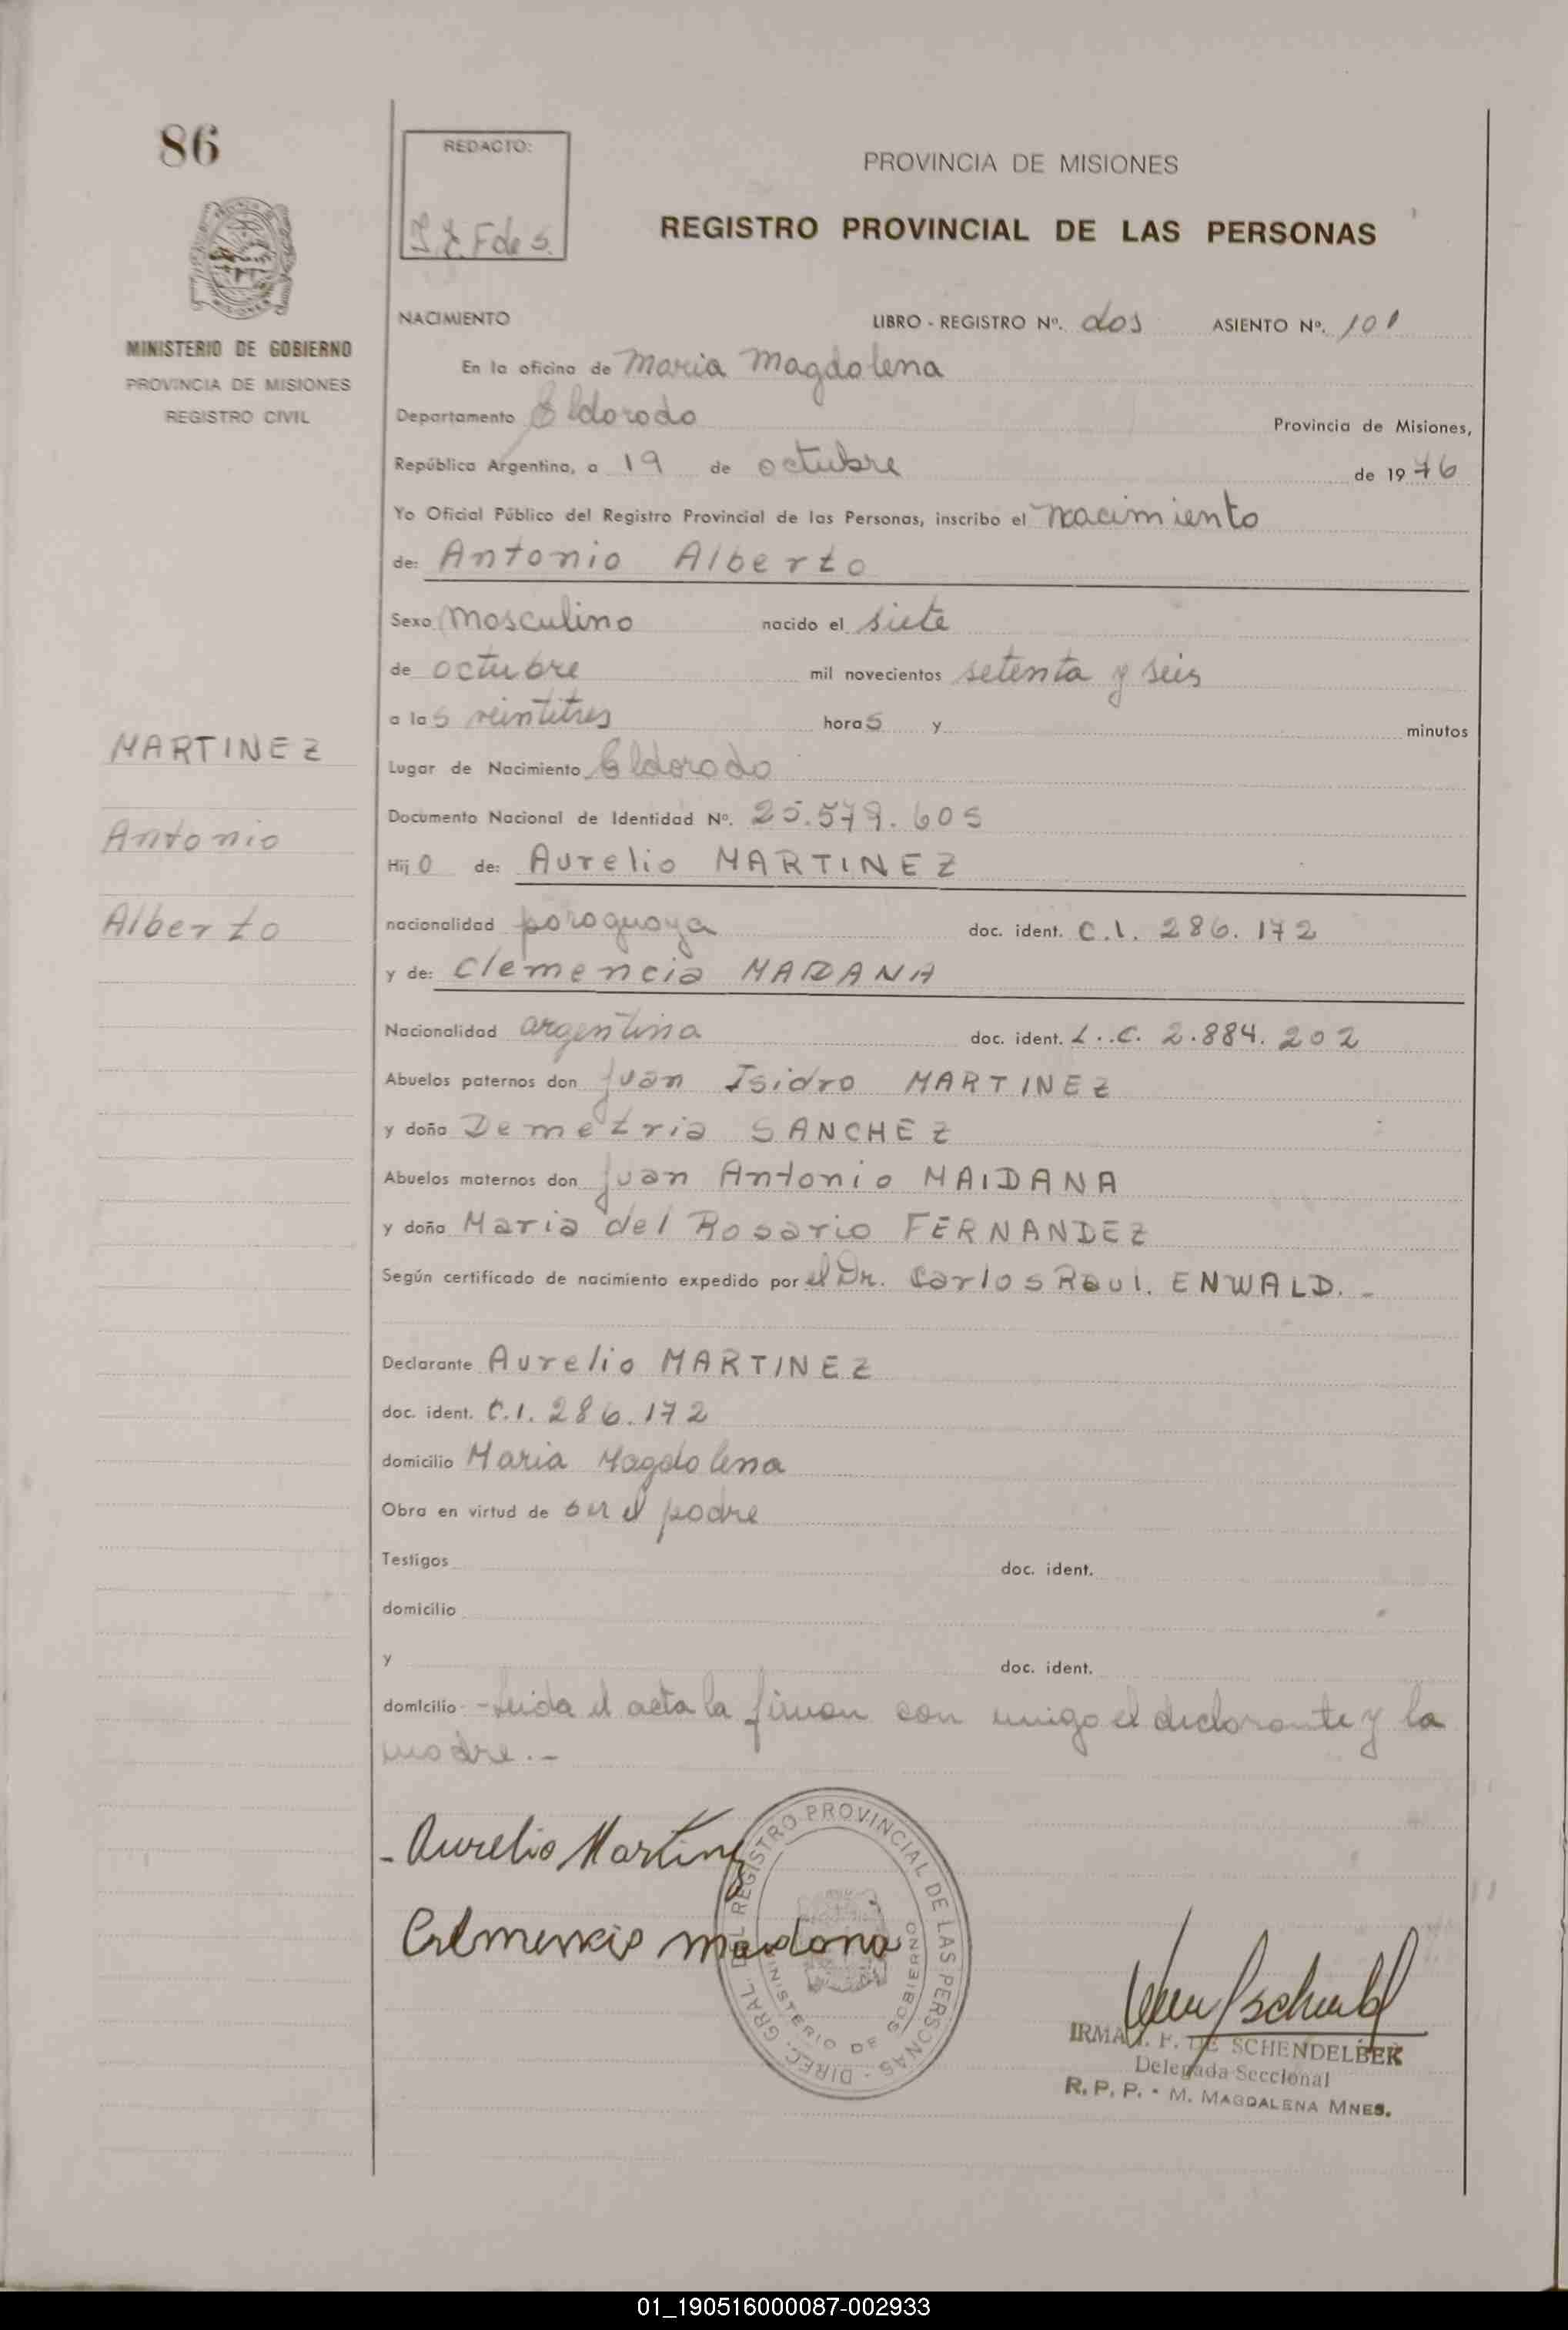 86
REDACTO:
PROVINCIA DE MISIONES
Fde S.
REGISTRO PROVINCIAL DE LAS PERSONAS
MINISTERIO DE GOBIERNO
PROVINCIA DE MISIONES
REGISTRO CIVIL
NACIMIENTO LIBRO - REGISTRO Nº. dos ASIENTO Nº. 101
En la oficina de Maria Magdalena
Departamento Eldorado Provincia de Misiones,
República Argentina, a 19 de octubre de 1976
Yo Oficial Público del Registro Provincial de las Personas, inscribo el nacimiento
de: Antonio Alberto
Sexo masculino nacido el siete
de octubre mil novecientos setenta y seis
a las veintitres horas y minutos
MARTINEZ
Antonio
Alberto
Lugar de Nacimiento Eldorado
Documento Nacional de Identidad Nº. 25.579.605
Hijo de: Aurelio MARTINEZ
nacionalidad paraguaya doc. ident. C.I. 286.172
y de: Clemencia
Nacionalidad argentina doc. ident. L.C. 2.884.202
Abuelos paternos don Juan Isidro MARTINEZ
y doña Demetria SANCHEZ
Abuelos maternos don Juan Antonio MAIDANA
y doña Maria del Rosario FERNANDEZ
Según certificado de nacimiento expedido por el Dr. Carlos Raul. ENWALD. -
Declarante Aurelio MARTINEZ
doc. ident. C.I. 286.172
domicilio Maria Magdalena
Obra en virtud de ser el padre
Testigos doc. ident.
domicilio
y doc. ident.
domicilio - Leida el acta la firman con migo el declarante y la
madre. -
- Aurelio Martinez
Clemencia maidana
DIREC. GRAL. DEL REGISTRO PROVINCIAL DE LAS PERSONAS -
MINISTERIO DE GOBIERNO
IRMA F. DE SCHENDELBEK
Delegada Seccional
R. P. P. - M. MAGDALENA MNES.
01_190516000087-002933